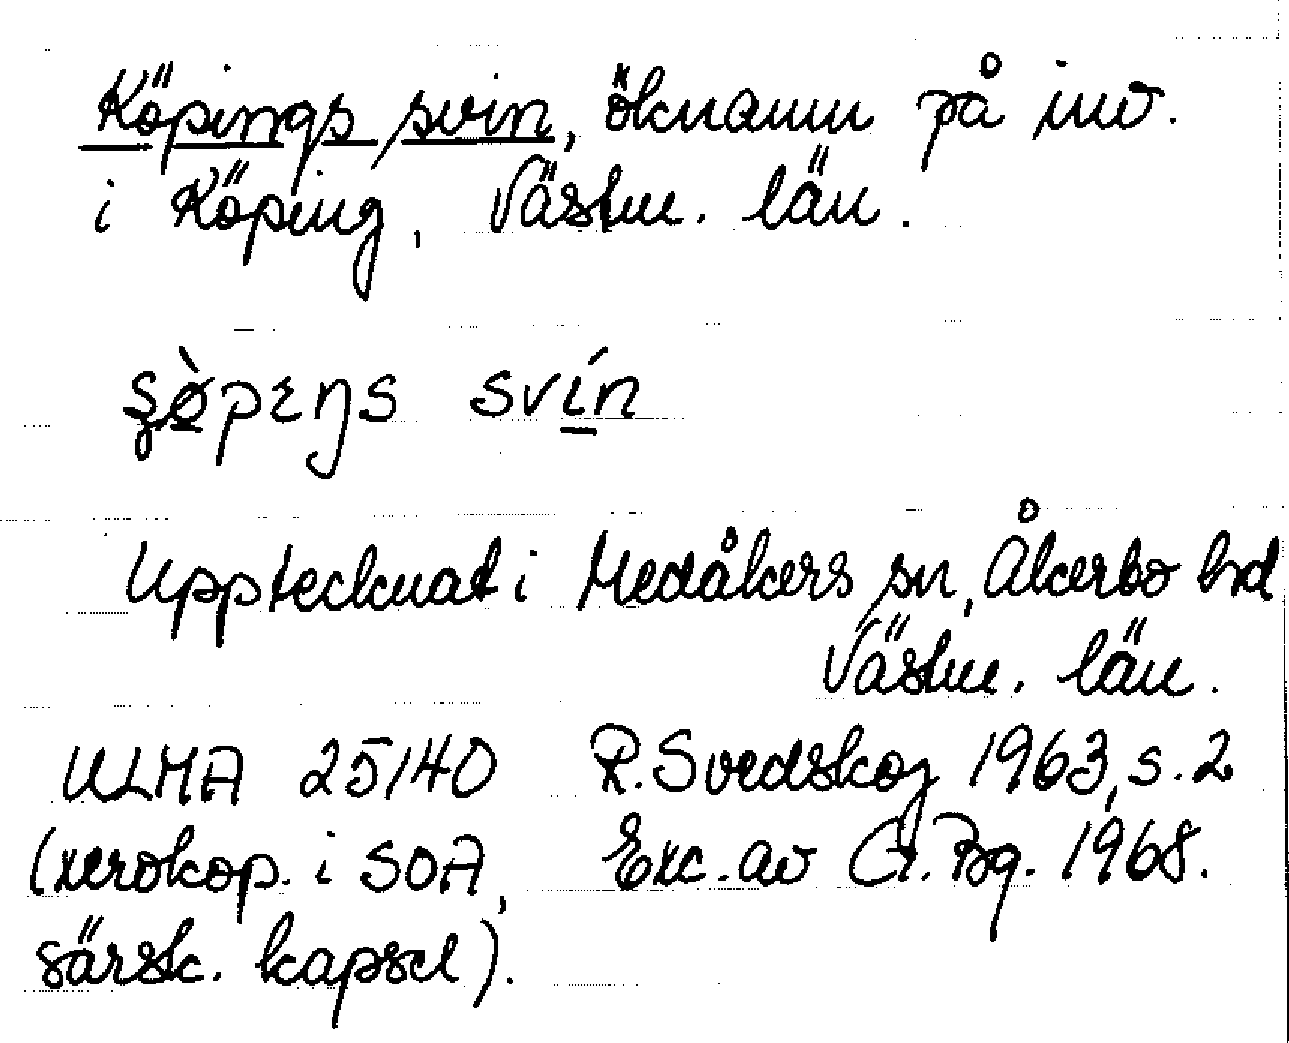 Köpings svin, öknamn på inv.
i Köping, Västm. län.
svín
Upptecknat i Medåkers sn, Åkerbo hd
Västm. län.
ULMA 25140 R. Svedskog 1963, s. 2
(xerokop. i SOA, Exc. av G. Bg. 1968.
särsk. kapsel).